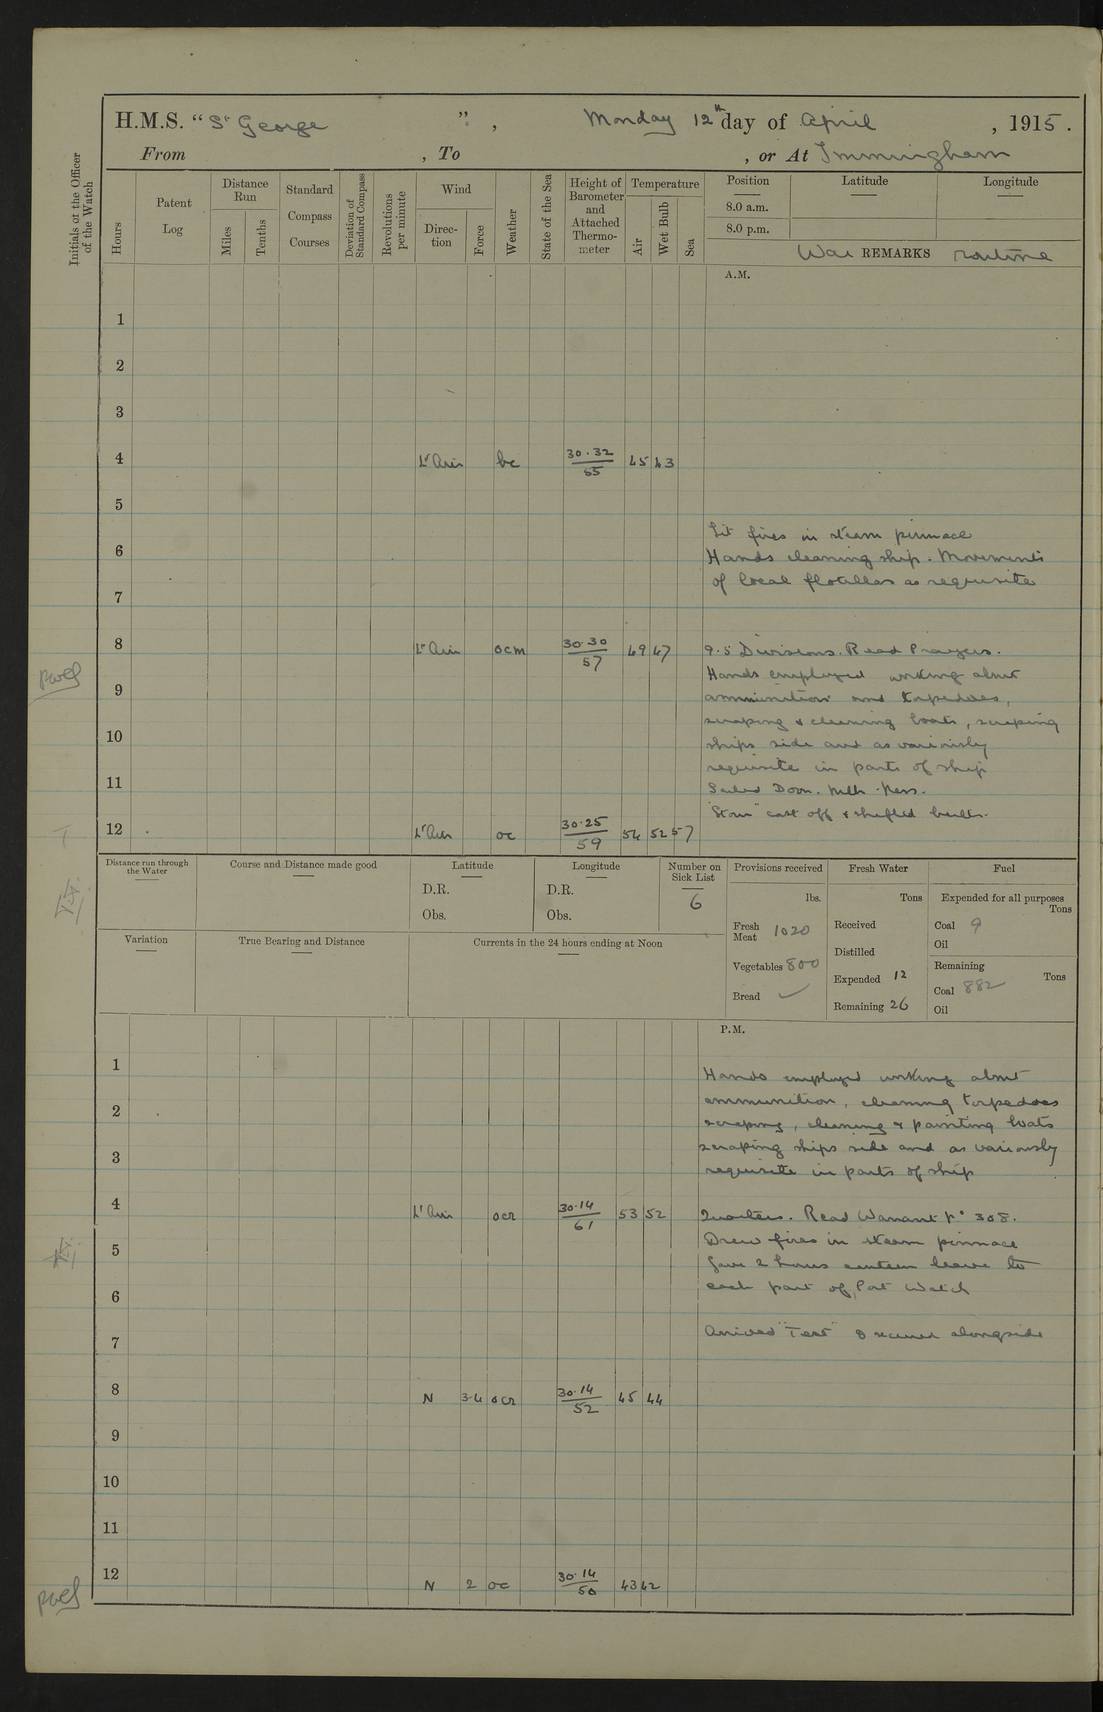 H.M.S. "St George", Monday 12th day of April, 1915.
From , To , or At Immingham
Initials of the Officer of the Watch
Hours
Patent Log
Distance Run
Miles
Tenths
Standard Compass Courses
Deviation of Standard Compass
Revolutions per minute
Wind
Direction
Force
Weather
State of the Sea
Height of Barometer and Attached Thermometer
Temperature
Air
Wet Bulb
Sea
Position
Latitude
Longitude
8.0 a.m.
8.0 p.m.
War REMARKS routine
A.M.
1
2
3
4 Lt Airs bc 30.32 55 45 43
5
Lit fires in steam pinnace
6
Hands cleaning ship. Movements
of local flotillas as requisite
7
8 Lt Airs ocm 30.30 57 49 47 9.5 Divisions. Read Prayers.
Hands employed working about
9
ammunition and torpedoes,
scraping & cleaning boats, scraping
10
ships side and as variously
requisite in parts of ship
11
Sailed Doon.
"Stour" cast off & shifted berth.
12 Lt Airs oc 30.25 59 54 52 57
Distance run through the Water
Course and Distance made good
Latitude
D.R.
Obs.
Longitude
D.R.
Obs.
Number on Sick List
6
Provisions received
lbs.
Fresh Meat 1020
Vegetables 800
Bread ✓
Fresh Water
Tons
Received
Distilled
Expended 12
Remaining 26
Fuel
Expended for all purposes
Tons
Coal 9
Oil
Remaining
Tons
Coal 882
Oil
Variation
True Bearing and Distance
Currents in the 24 hours ending at Noon
P.M.
1
Hands employed working about
2
ammunition, cleaning torpedoes
scraping, cleaning & painting boats
3
scraping ships side and as variously
requisite in parts of ship
4 Lt Airs ocr 30.14 61 53 52 Quarters. Read Warrant No 308.
Drew fires in steam pinnace
5
Gave 2 hours canteen leave to
each part of Port Watch
6
Arrived "Test" & secured alongside
7
8 N 3-4 ocr 30.14 52 45 44
9
10
11
12 N 2 oc 30.14 50 43 42